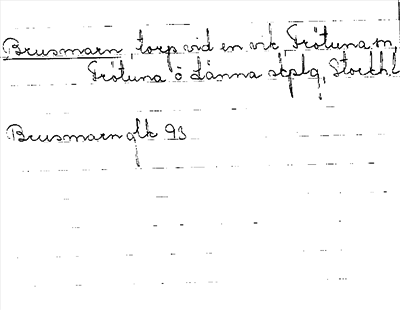 Brusmarn, torp vid en vik, Frötuna sn,
Frötuna o Länna skplg, Stockh.l
Brusmarn glk 93